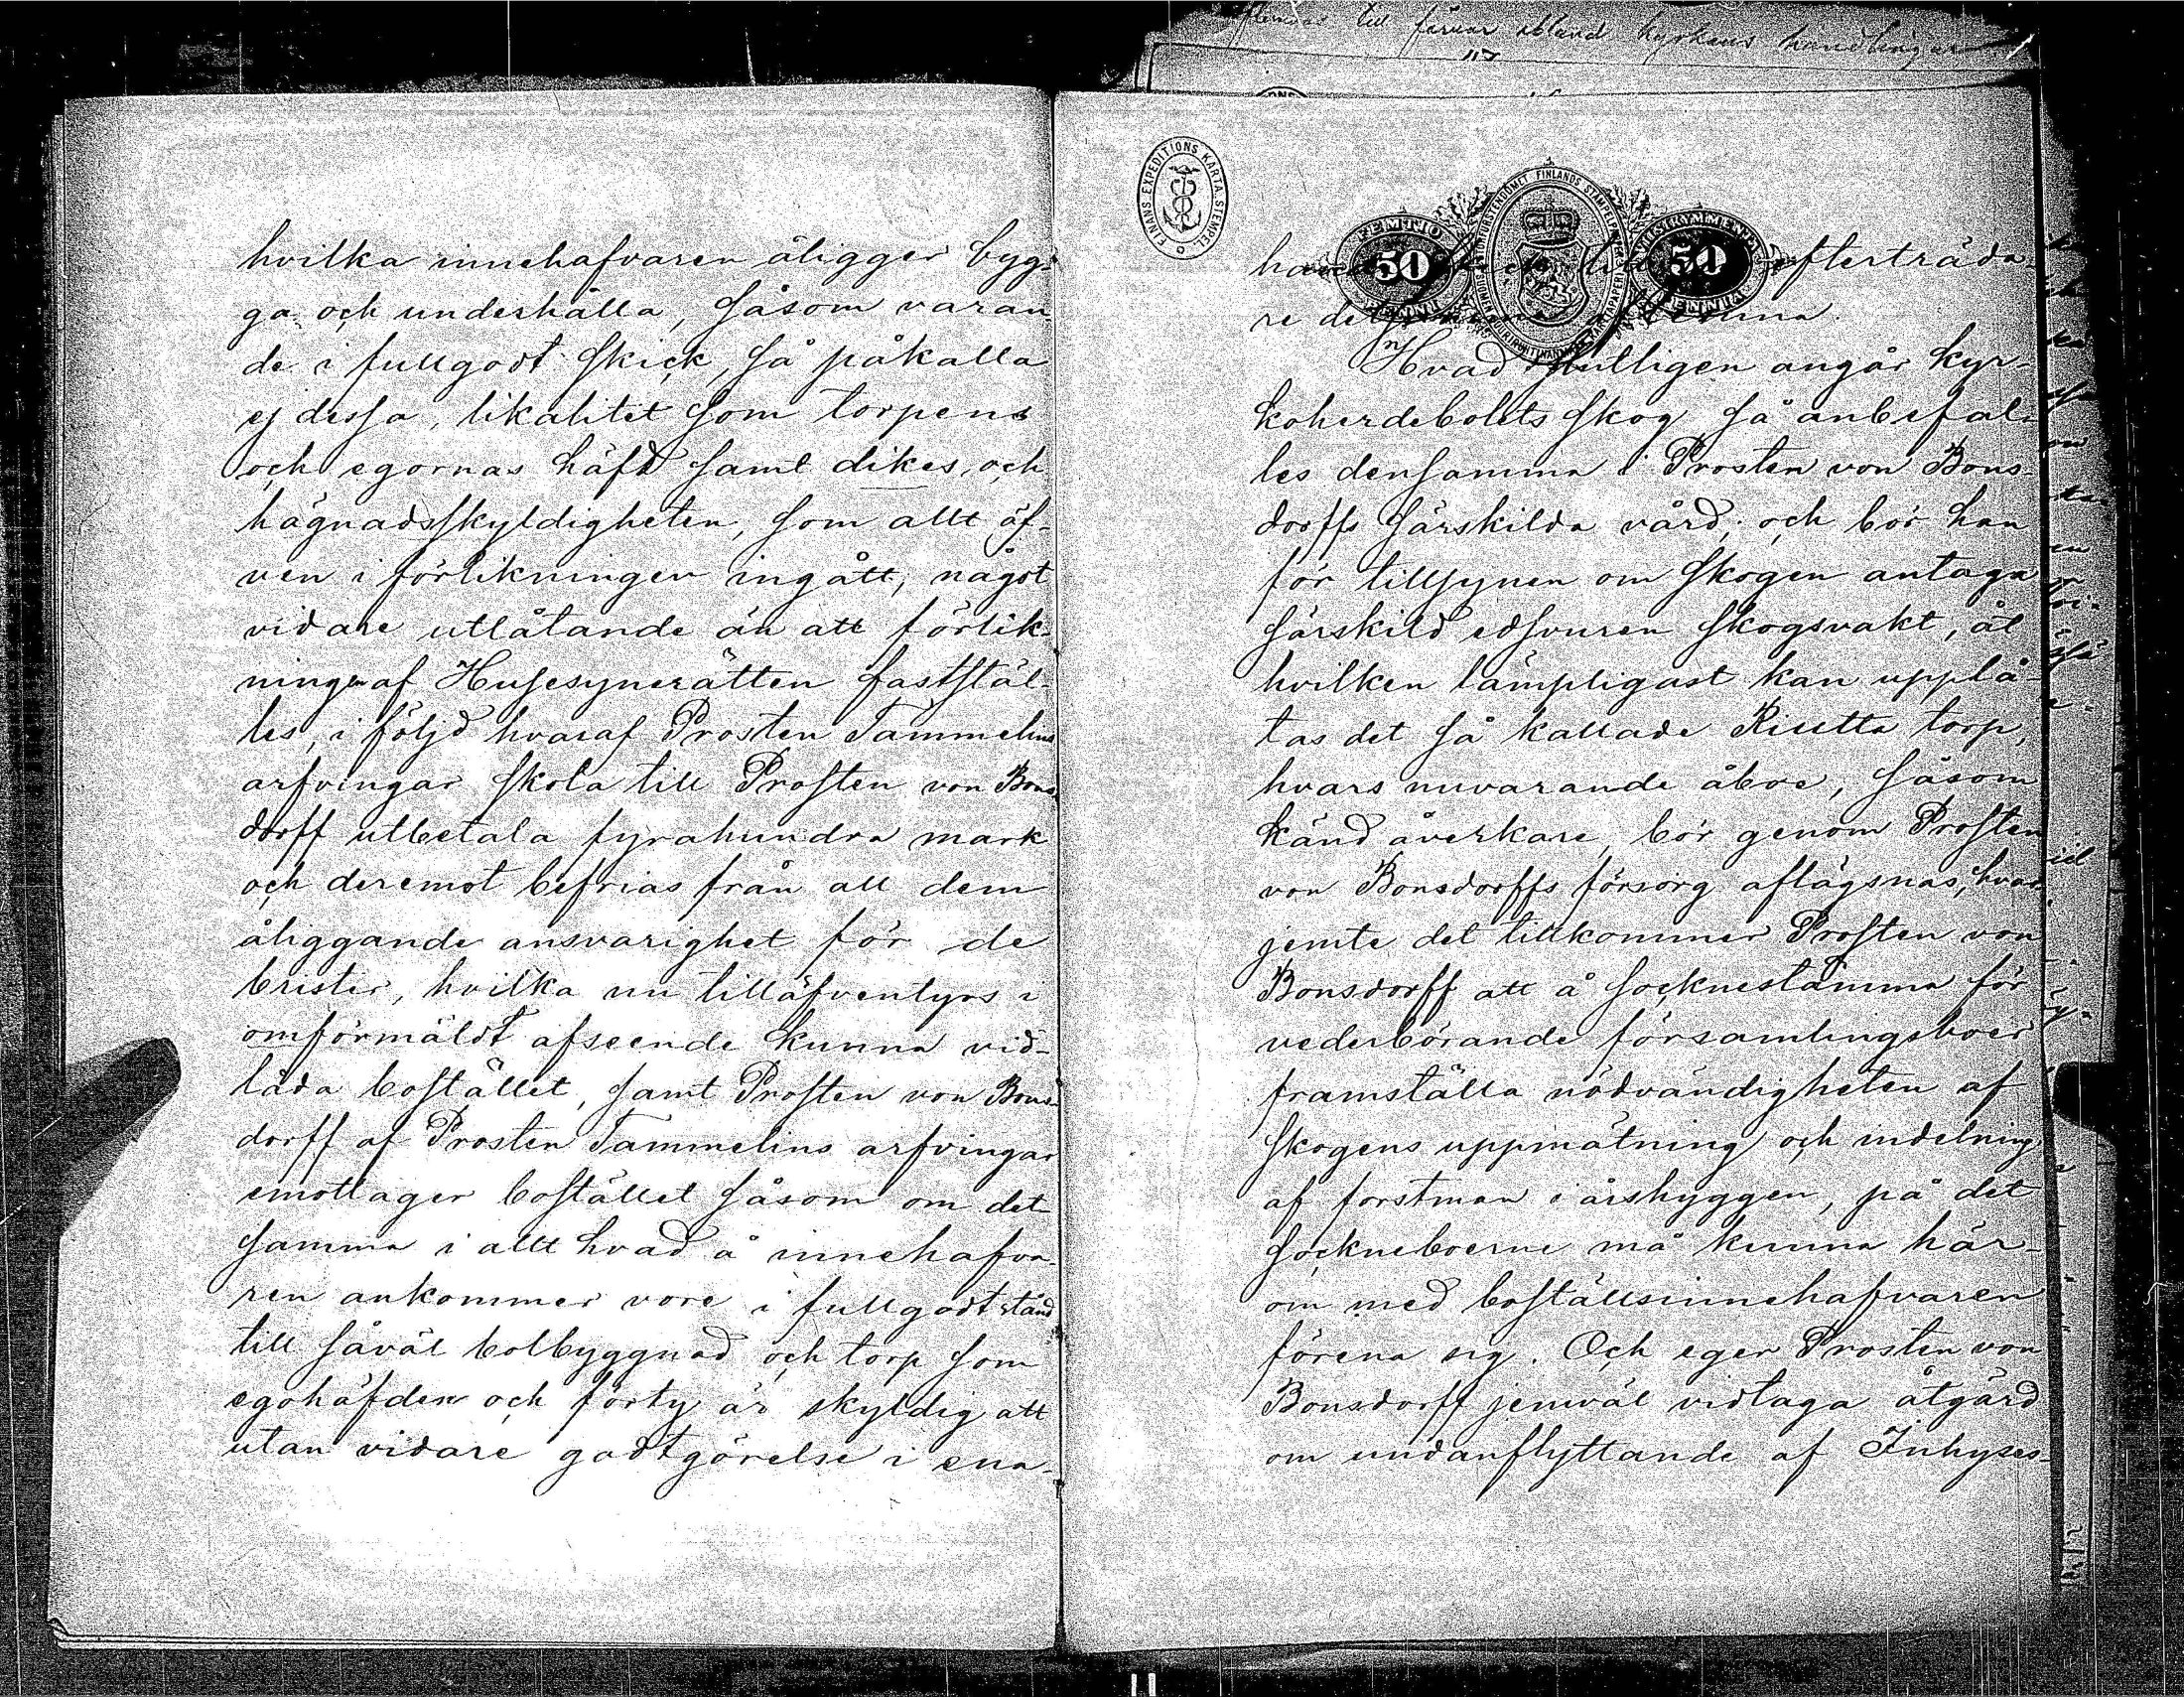 till förvar ibland kyrkans handlingar
hvilka innehafvaren åligger byg-
ga och underhålla, såsom varan
de i fullgodt skick, så påkalla
ej dessa, likalitet som torpens
och egornas häfd samt dikes, och
hägnadsskyldigheten, som allt äf-
ven i förlikningen ingått, något
vidare utlåtande än att förlik-
ningen af Husesynerätten faststäl-
les, i följd hvaraf Prosten Tammelins
arfvingar skola till Prosten von Bons
dorff utbetala fyrahundra mark
och deremot befrias från all dem
åliggande ansvarighet för de
brister, hvilka nu tilläfventyrs i
omförmäldt afseende kunna vid-
låda bostället, samt Prosten von Bons-
dorff af Prosten Tammelins arfvingar
emottager bostället såsom om det
samma i allt hvad å innehafva-
ren ankommer vore i fullgodt stånd
till såväl bolbyggnad och torp som
egohäfden och förty är skyldig att
utan vidare godtgörelse i ena-
FINANS EXPEDITIONS KARTA. STEMPEL.
FEMTIO 50 PENNI
50 PENNIÄ
efterträda-
re
Hvad slutligen angår kyr-
koherdebolets skog så anbefal-
les densamma i Prosten von Bons
dorffs särskilda vård; och bör han
för tillsynen om skogen antaga
särskild edsvuren skogsvakt, åt
hvilken lämpligast kan upplå-
tas det så kallade Riutta torp,
hvars nuvarande åboe, såsom
känd åverkare, bör genom Prosten
von Bonsdorffs försorg aflägsnas, hvar
jemte det tillkommer Prosten von
Bonsdorff att å socknestämma för
vederbörande församlingsboer
framställa nödvändigheten af
skogens uppmätning och indelning
af forstman i årshyggen, på det
sockneboerne må kunna här-
om med boställsinnehafvaren
förena sig. Och eger Prosten von
Bonsdorff jemväl vidtaga åtgärd
om undanflyttande af Inhyses-